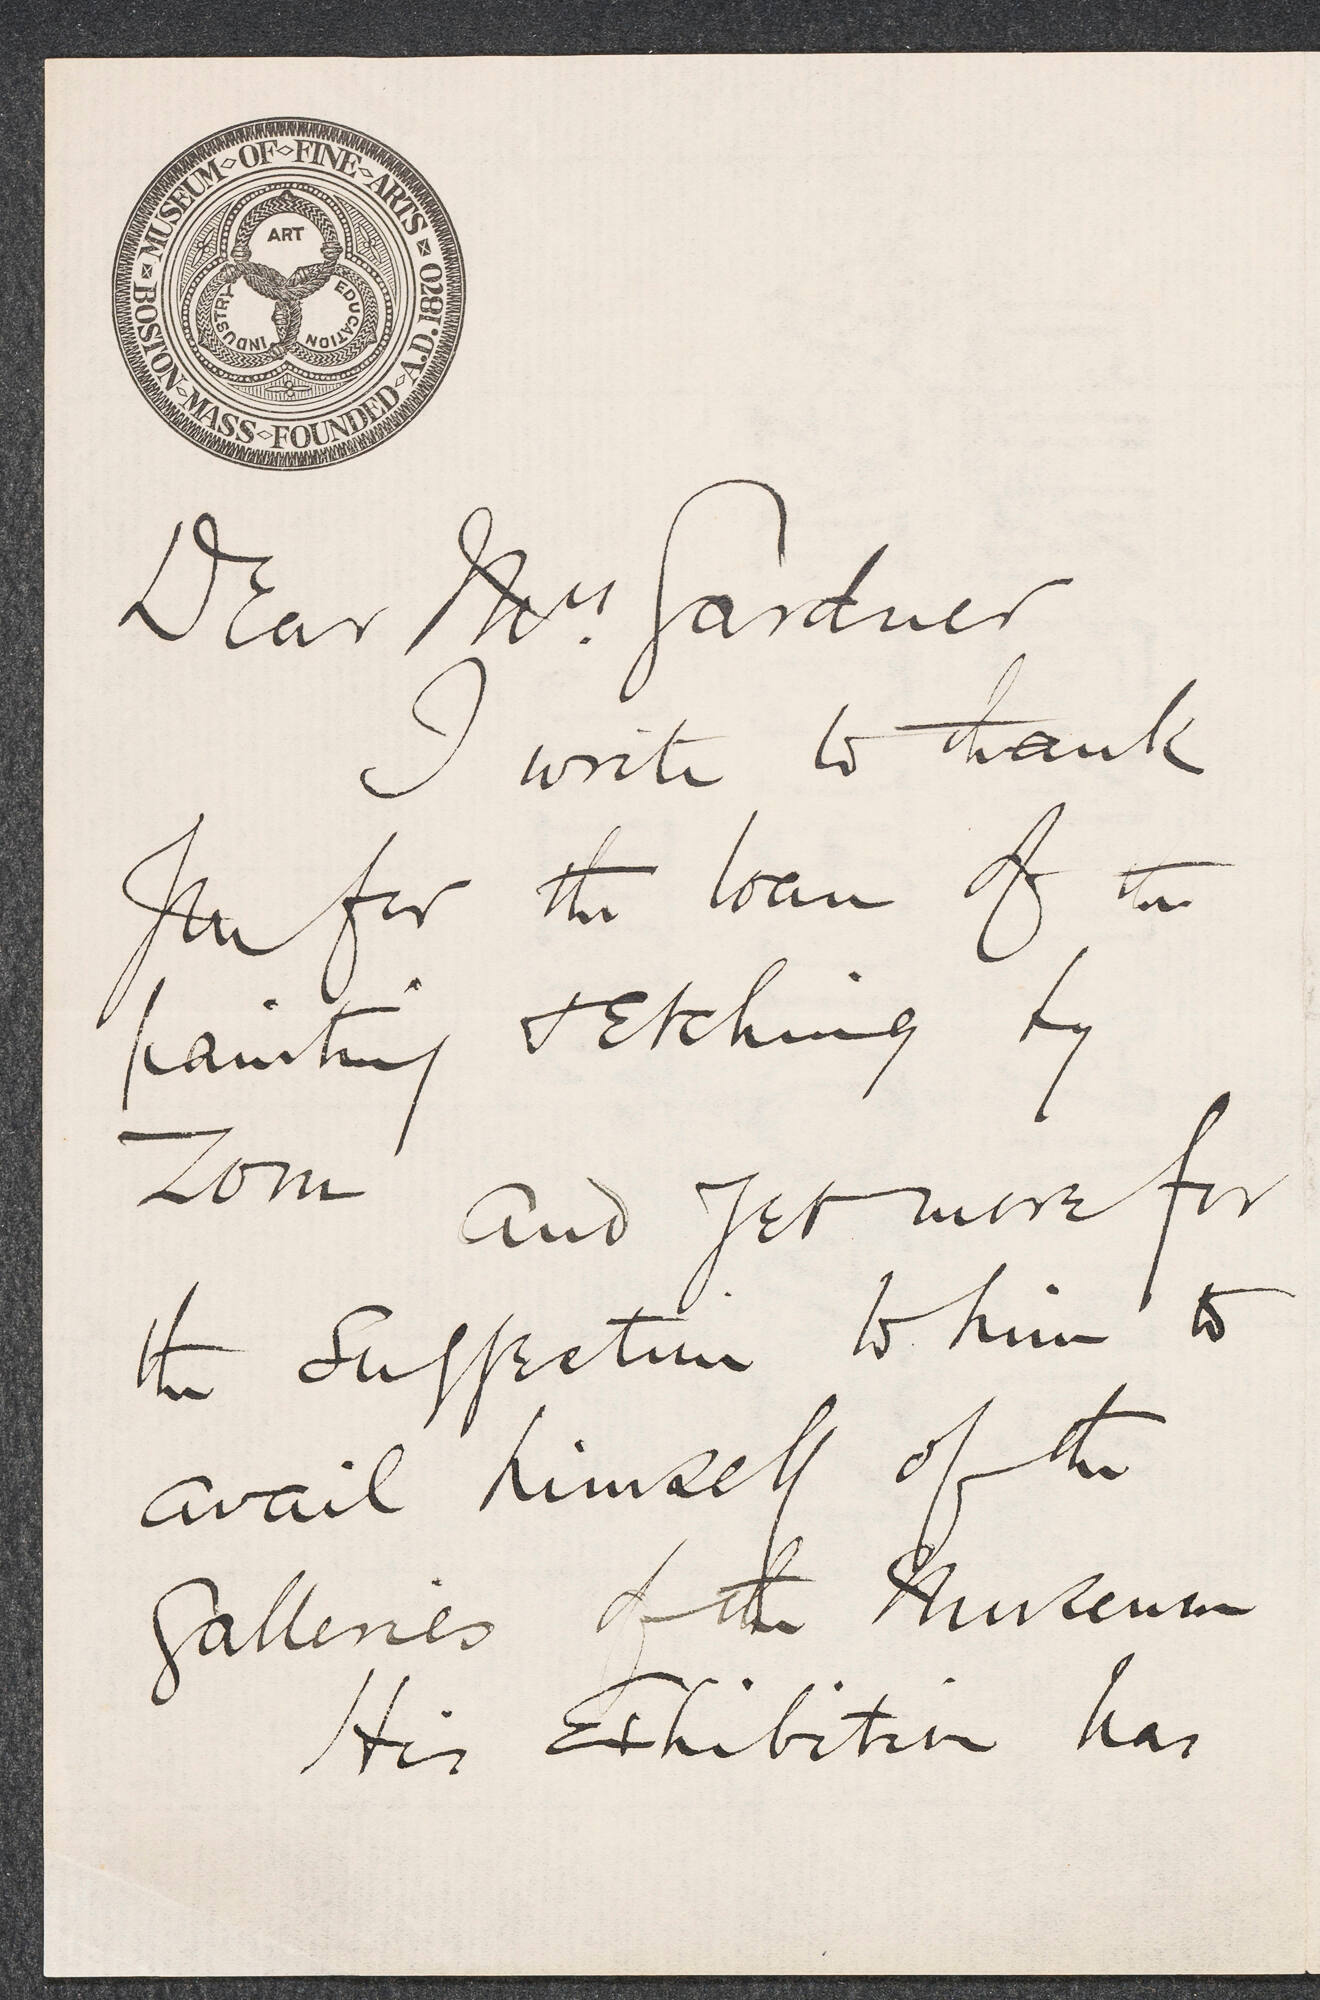 MUSEUM OF FINE ARTS
BOSTON MASS FOUNDED A.D. 1870
ART
INDUSTRY
EDUCATION
Dear Mrs. Gardner
I write to thank
you for the loan of the
painting & Etching by
Zorn and yet more for
the Suggestion to him to
avail himself of the
galleries of the Museum
His Exhibition has